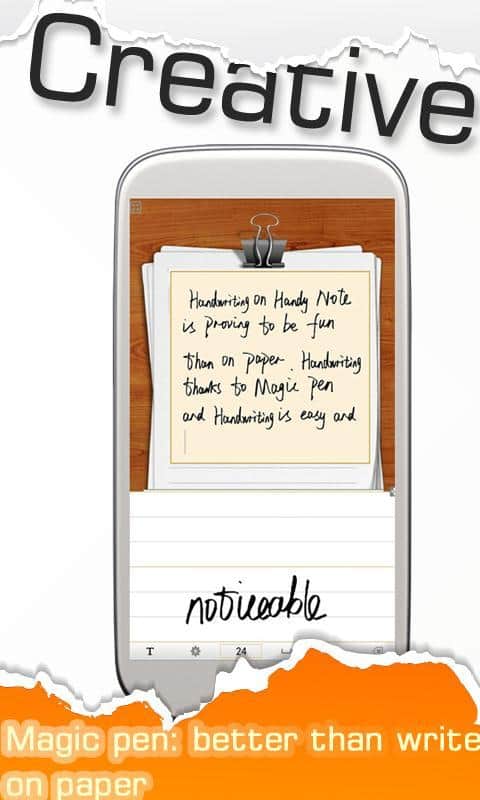 Creative
Handwriting on Handy Note
is proving to be fun
than on paper. Handwriting
thanks to Magic Pen
and Handwriting is easy and
noticeable
T 24
Magic pen: better than write
on paper